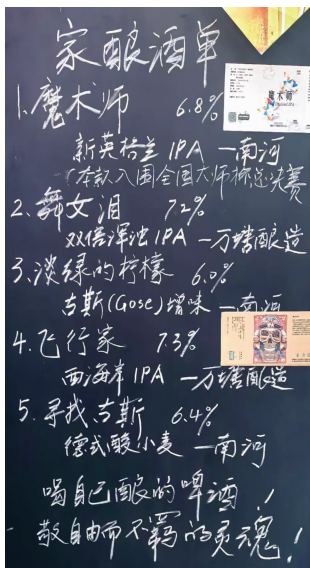 家酿酒单
1.魔术师 6.8%
新英格兰IPA —南河
(本款入围全国大师杯总决赛
2.舞女泪 7.2%
双倍浑浊IPA —万塘酿造
3.淡绿的柠檬 6.0%
古斯(Gose)增味 —南河
4.飞行家 7.3%
西海岸IPA —万塘酿造
5.寻找古斯 6.4%
德式酸小麦 —南河
喝自己酿的啤酒！
敬自由而不羁的灵魂！
魔术师